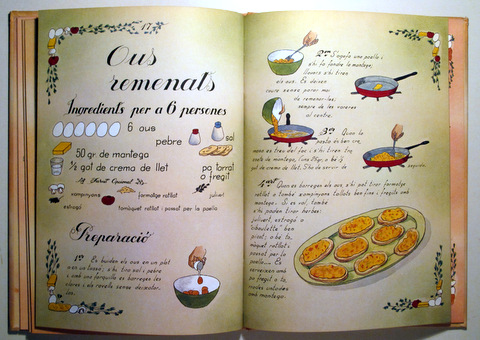 17
Ous
remenats
Ingredients per a 6 persones
6 ous
pebre
sal
50 gr. de mantega
½ got de crema de llet
pa torrat
o fregit
xampinyons
formatge ratllat
julivert
estragó
tomàquet ratllat i passat per la paella
Preparació
1er Es buiden els ous en un plat
o en un bol; s'hi tira sal i pebre
i amb una forquilla es barregen les
clares i els rovells sense
2on S'agafa una paella i
s'hi fa fondre la mantega;
llavors s'hi tiren
els ous. Es deixen
coure sense parar mai
de remenar-los,
sempre de les vores
al centre.
3er Quan la
pasta és ben
treu del foc i s'hi tiren
de mantega,
got de crema de llet. S'ha de servir de
seguida.
4art Quan es barregen els ous s'hi pot tirar formatge
ratllat o també xampinyons tallats ben fins i fregits amb
mantega. Si es vol, també
s'hi poden tirar herbes:
julivert, estragó o
ciboulette ben
picat; o bé to-
màquet ratllat i
passat per la
paella. Es
serveixen amb
pa fregit o to-
rrades untades
amb mantega.